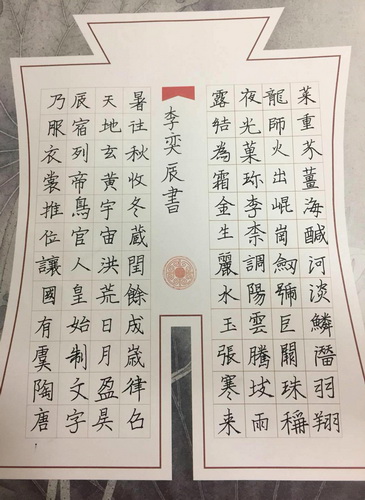 菜重芥薑海鹹河淡鱗潛羽翔
龍師火出崐崗劒號巨闕珠稱
夜光菓珍李柰調陽雲騰致雨
露結為霜金生麗水玉張寒来
李奕辰書
暑往秋收冬藏閏餘成歲律召
天地玄黃宇宙洪荒日月盈昃
辰宿列帝鳥官人皇始制文字
乃服衣裳推位讓國有虞陶唐